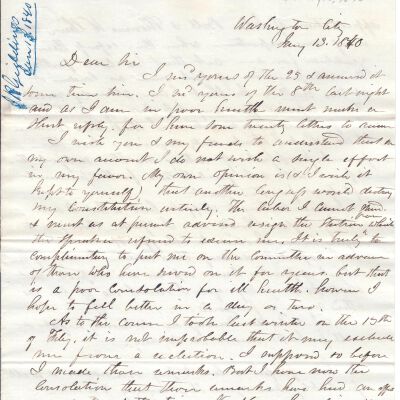 J R Giddings
Jan 13. 1840
Washington City
Jany 13. 1840
Dear Sir
I recd yours of the 23 & answered it
some time since. I recd yours of the 8th last night
and as I am in poor health must make a
short reply. for I have some twenty letters to answer
I wish you & my friends to understand that on
my own account I do not wish a single effort
in my favor. My own opinion is (& I wish it
kept to yourself) that another Congress would destroy
my constitution entirely. The labor I cannot
& must as at present advised resign the station which
the Speaker refused to excuse me. It is truly
complimentary to put me on the Committee in advance
of those who have served on it for years. but that
is a poor consolation for ill health. however I
hope to feel better in a day or two.
As to the course I took last winter on the 13th
of Feby, it is not improbable that it may exclude
me from a reelection. I supposed so before
I made those remarks. But I have now the
consolation that those remarks have had an